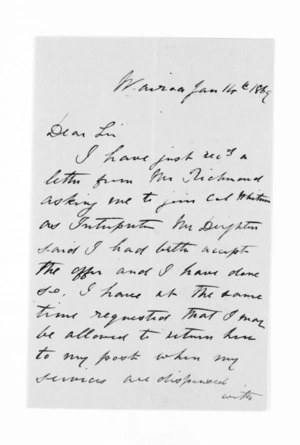 Wairoa Jan 14th 1869
Dear Sir
I have just recd a
letter from Mr Richmond
asking me to join Col Whitmore
as Interpreter Mr Deighton
said I had better accept
the offer and I have done
so. I have at the same
time requested that I may
be allowed to return here
to my post when my
services are dispensed
with